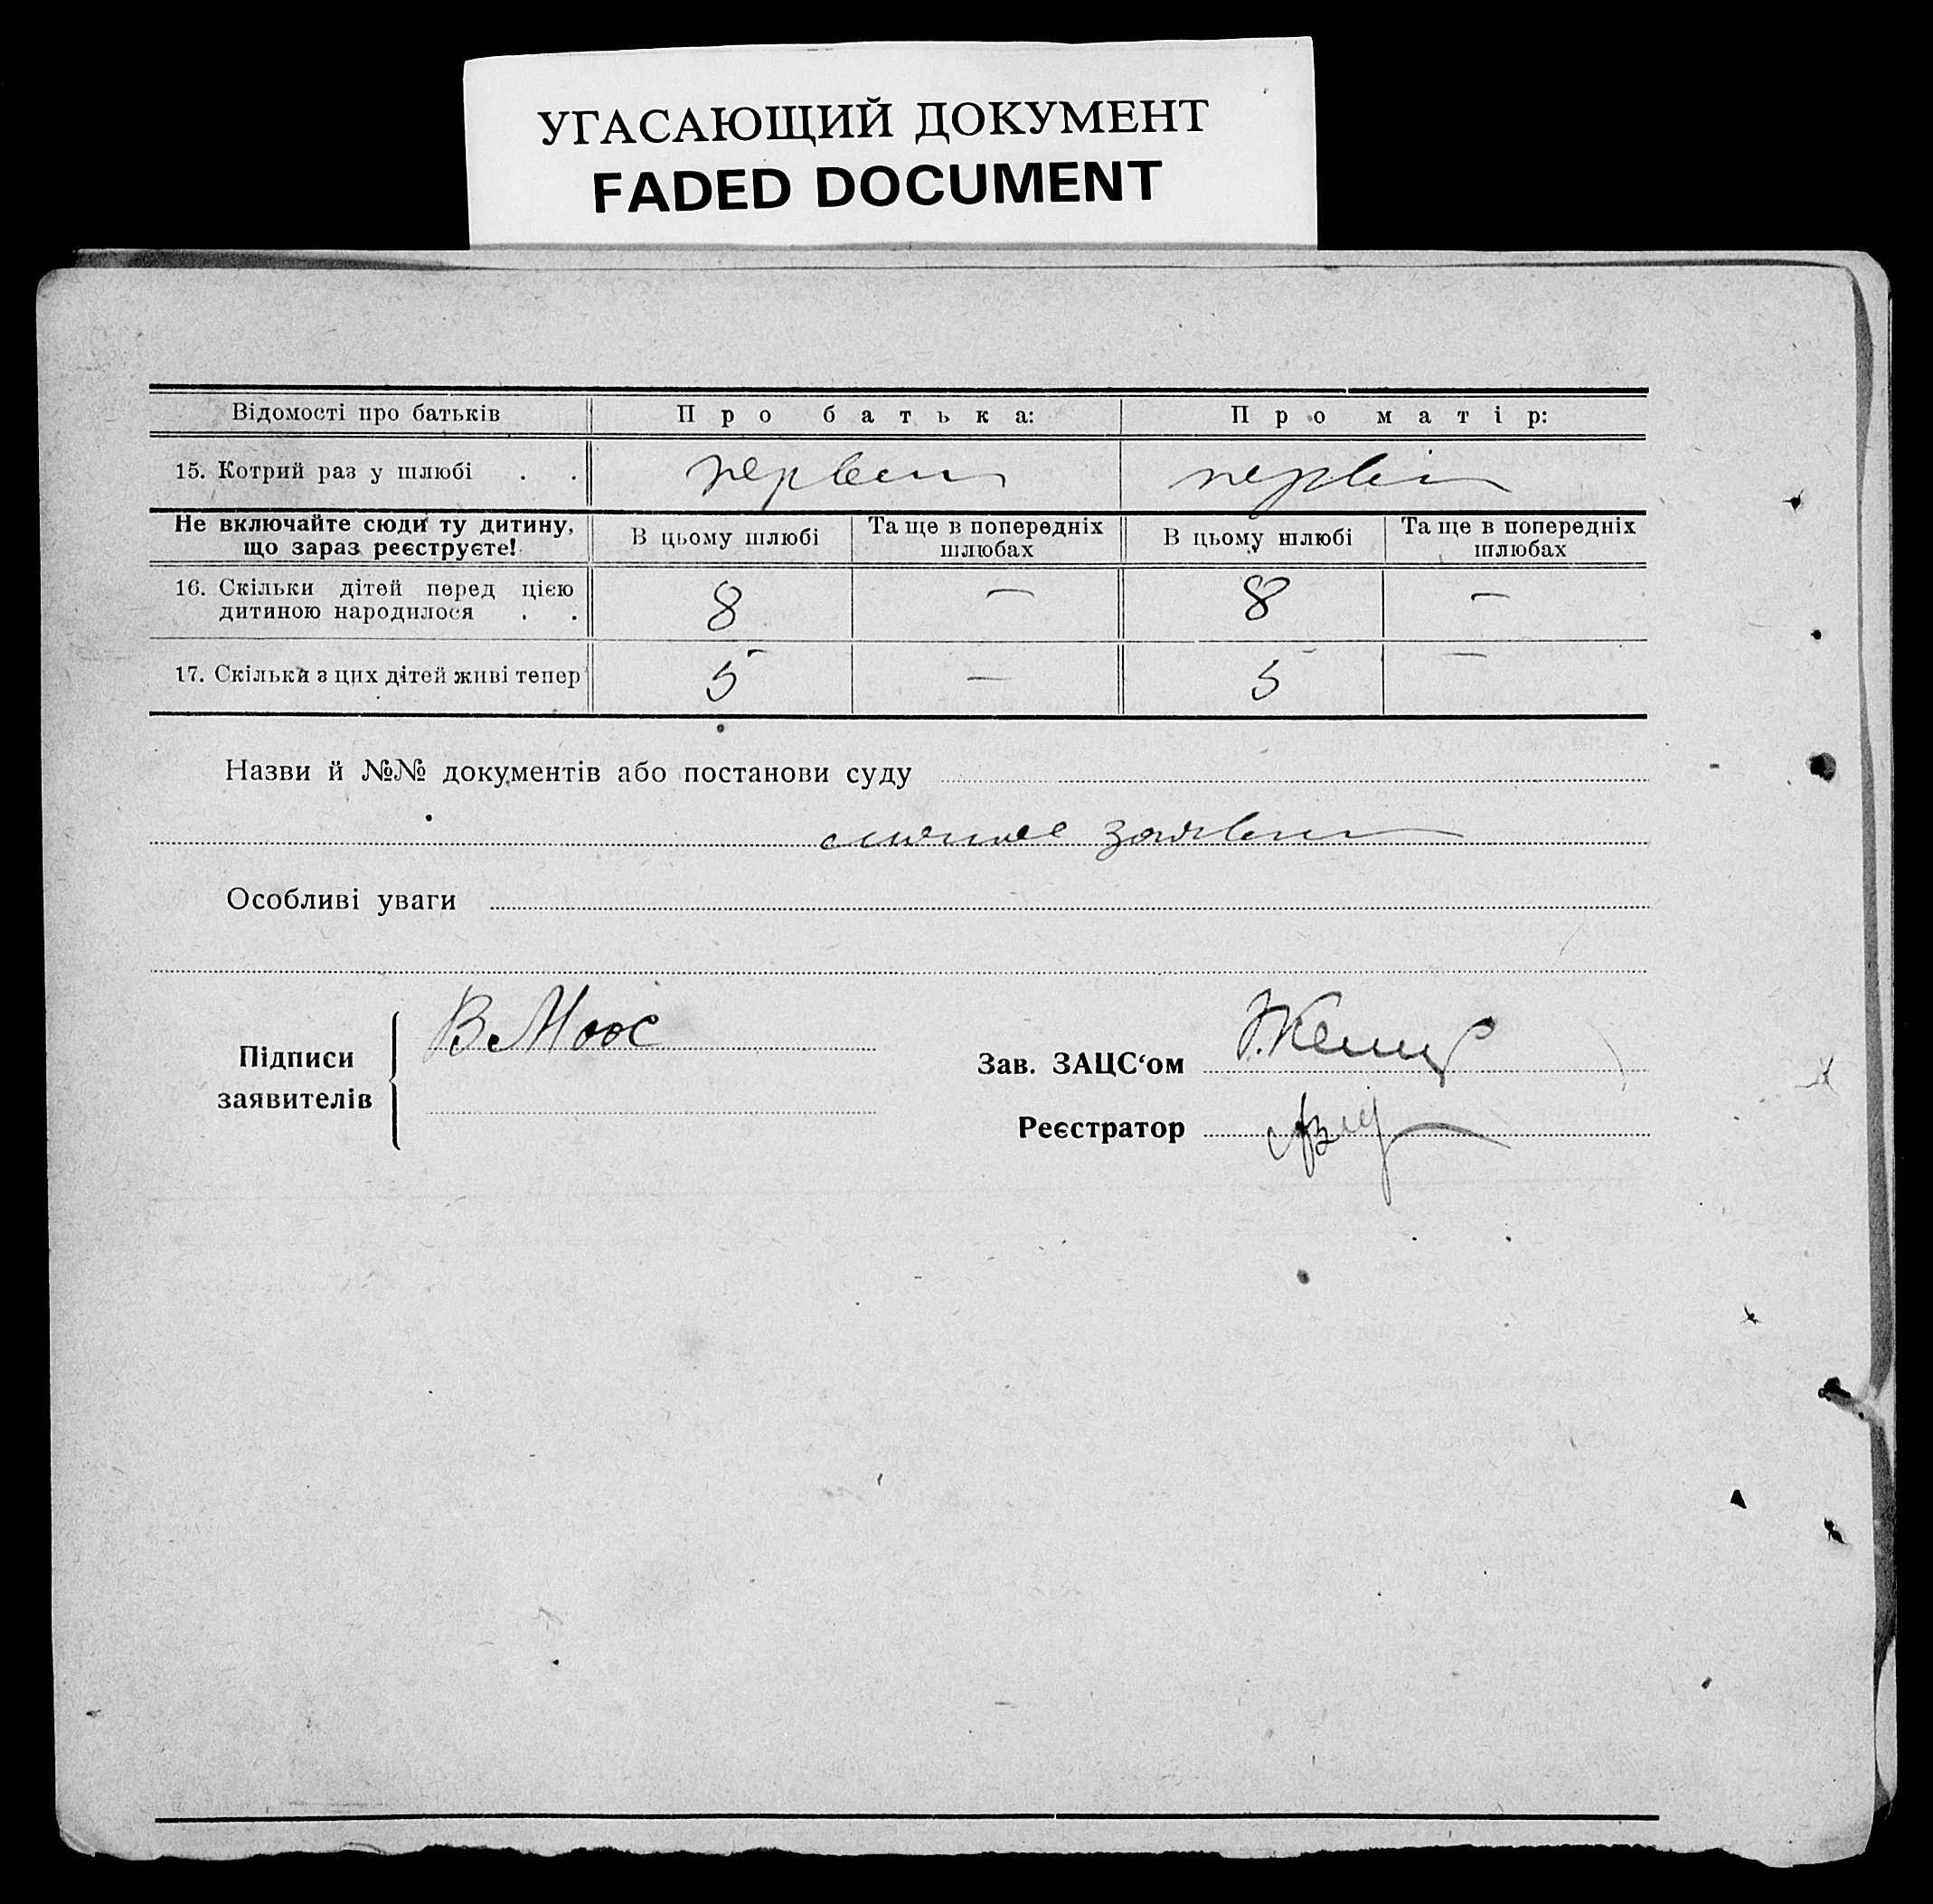 УГАСАЮЩИЙ ДОКУМЕНТ
FADED DOCUMENT
Відомості про батьків Про батька: Про матір:
15. Котрий раз у шлюбі . .
Не включайте сюди ту дитину, що зараз реєструєте! В цьому шлюбі Та ще в попередніх шлюбах В цьому шлюбі Та ще в попередніх шлюбах
16. Скільки дітей перед цією дитиною народилося . . 8 — 8 —
17. Скільки з цих дітей живі тепер 5 — 5 —
Назви й №№ документів або постанови суду
Особливі уваги
Підписи заявителів В. Моос
Зав. ЗАЦС‘ом
Реєстратор